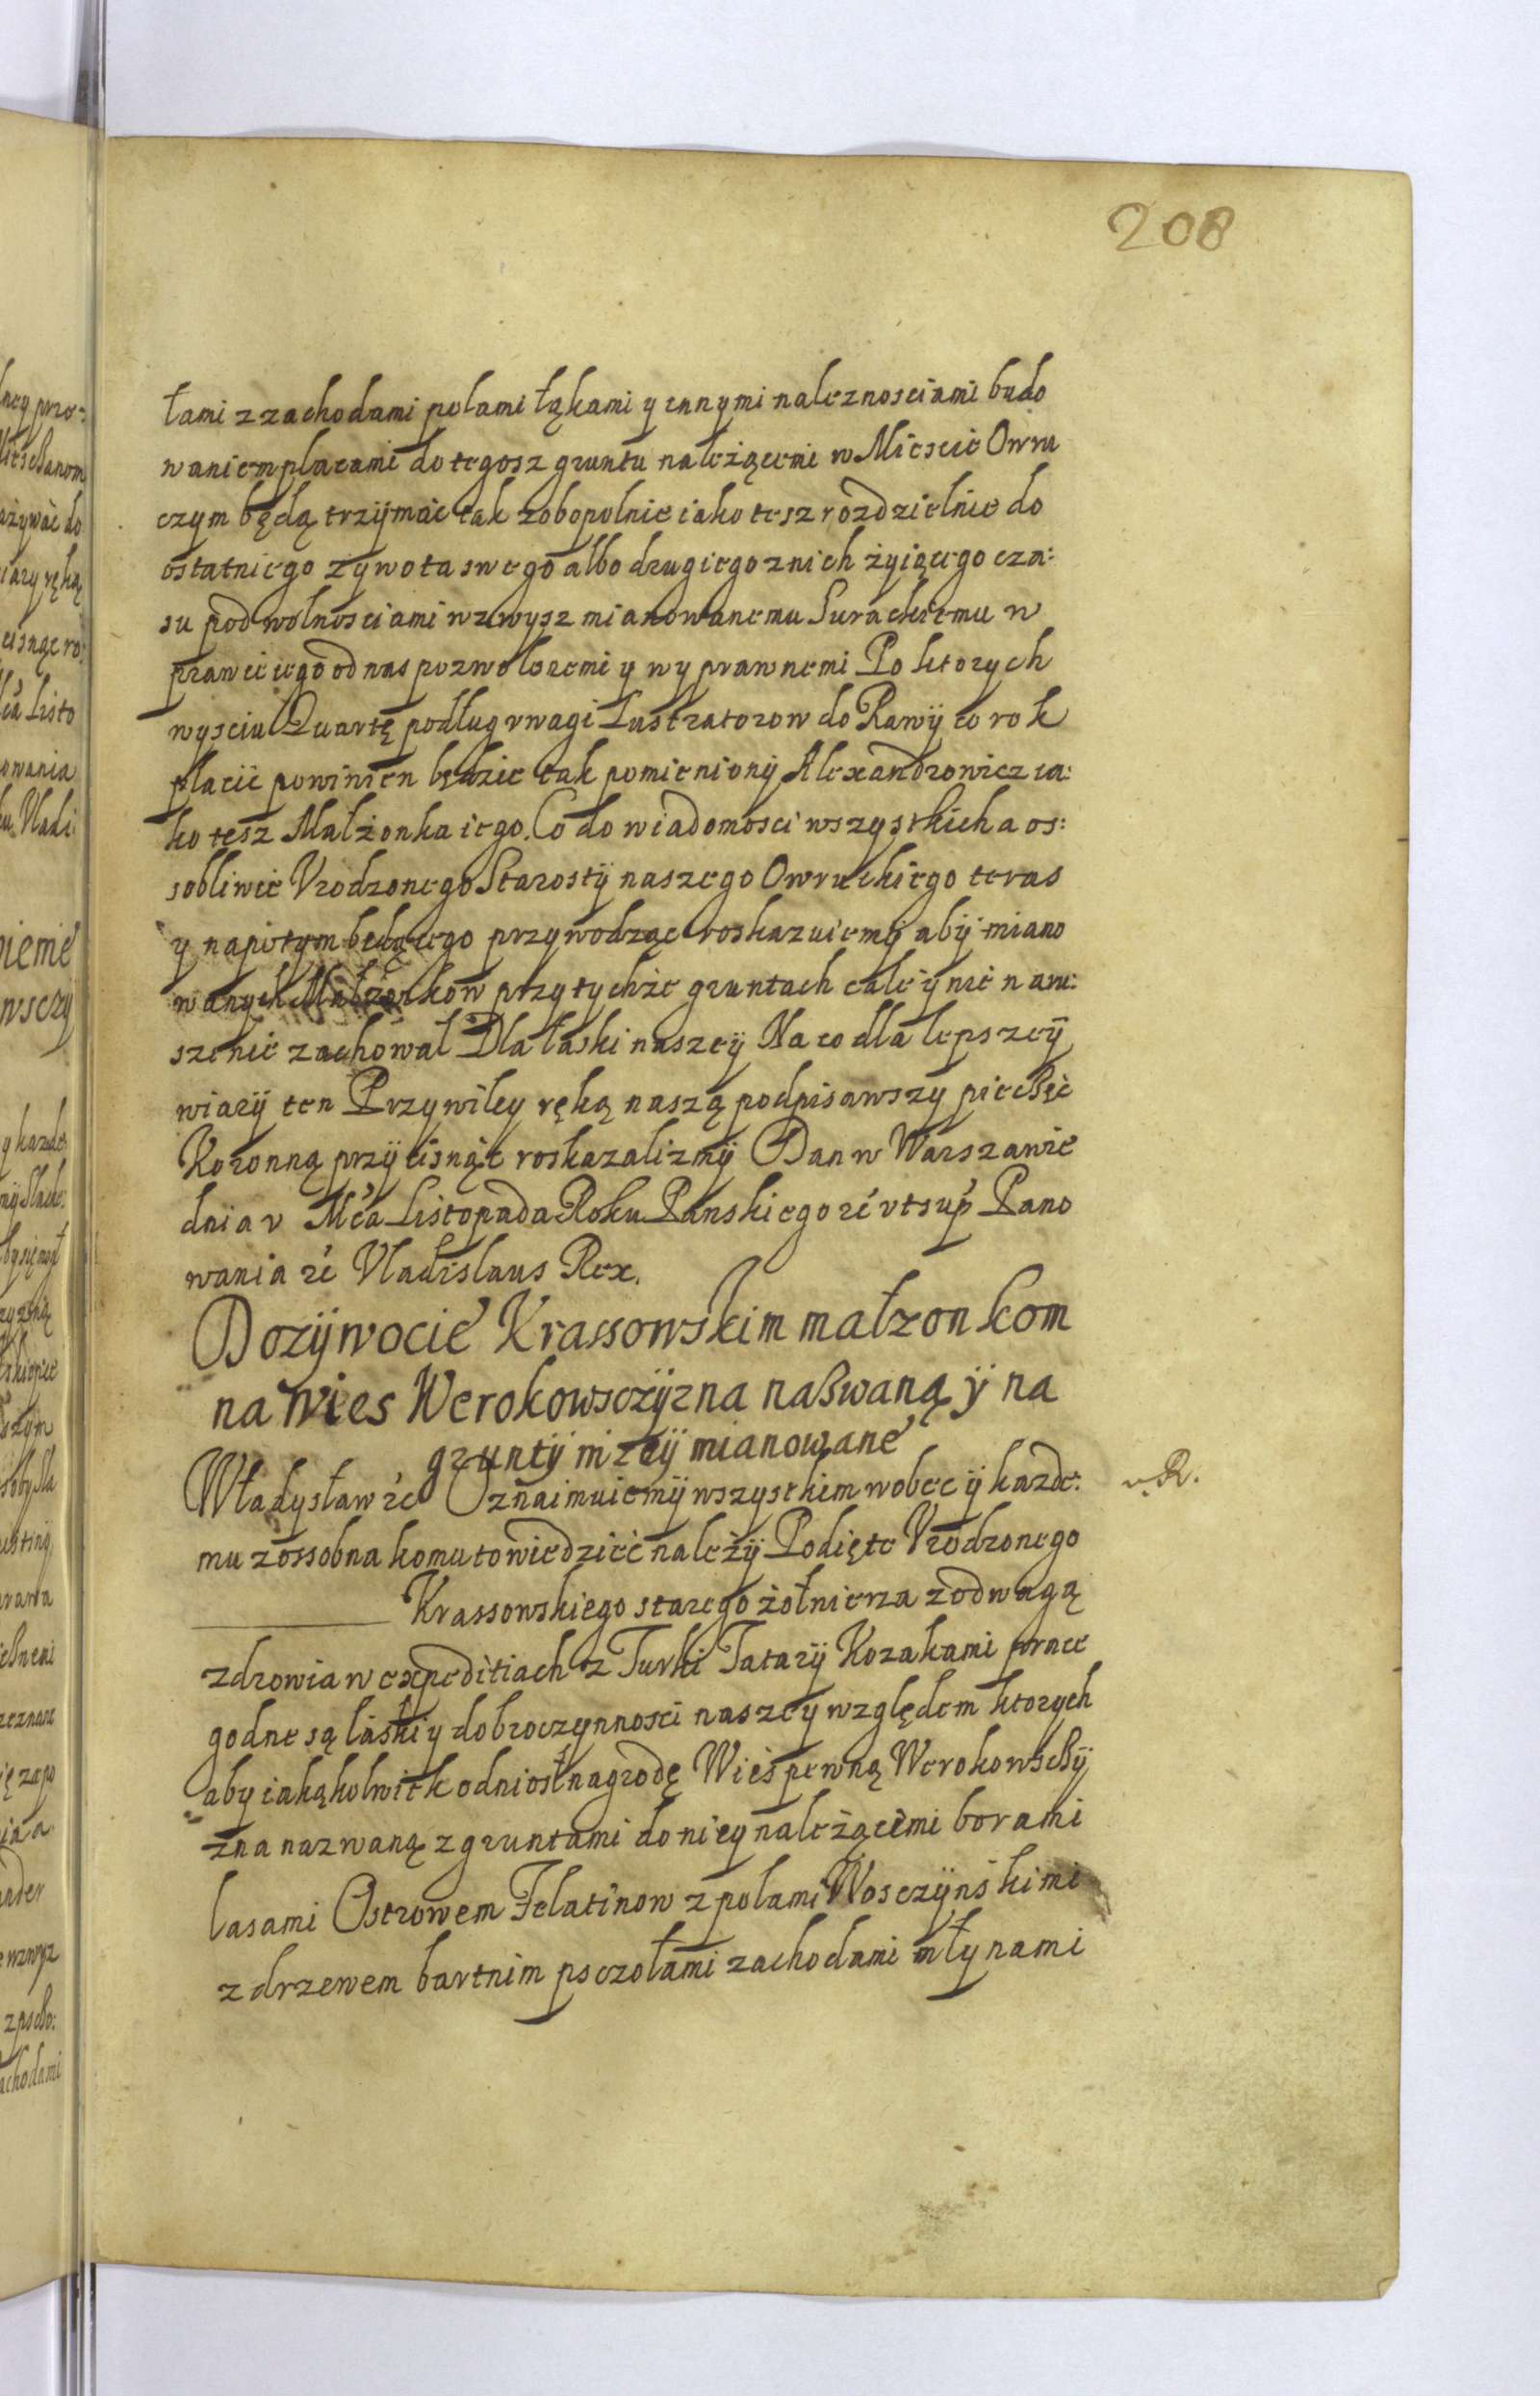 208
łami z zachodami polami łąkami y innymi naleznosciami budo
waniem placami do tegosz gruntu należącemi w Miescie Owru
czym będą trzÿmac tak zobopolnie iako tesz rozdzielnie do
ostatniego zywota swego albo drugiego z nich żyiącego cza:
su pod wolnosciami wzwysz mianowanemu Surackiemu w
prawie iego od nas pozwolonemi y wyprawnemi Po ktorych
wysciu Quartę podług vwagi Lustratorow do Rawÿ co rok
placic powinien będzie tak pomienionÿ Alexandrowicz ia:
ko tesz Małżonka iego. Co do wiadomosci wszystkich a os:
sobliwie Vrodzonego Starostÿ naszego Owruckiego teras
y napotym będącego przywodząc roskazuiemÿ abÿ miano
wanych Małżonkow przy tychże gruntach cale ÿ nie naru:
szenie zachował Dla łaski naszeÿ Na co dla lepszeÿ
wiarÿ ten Przywiley ręką naszą podpisawszy pieczęc
Koronną przÿcisnąc roskazalizmÿ Dan w Warszawie
dnia v Mca Listopada Roku Panskiego rc vt sup Pano
wania rc Vladislaus Rex.
Dozÿwocie Krassowskim małzonkom
na wies Werokowsczÿzna naßwaną ÿ na
gruntÿ nizeÿ mianowane
Władysław rc Oznaimuiemÿ wszystkim wobec ÿ kazde:
v. R.
mu zossobna komu to wiedziec należÿ Podięte Vrodzonego
Krassowskiego starego żołnierza z odwagą
zdrowia w expeditiach z Turki Tatarÿ Kozakami prace
godne są łaski y dobroczynnosci naszey względem ktorych
aby iakąkolwiek odniosł nagrodę Wies pewną Werokowsczÿ
zna nazwaną z gruntami do niey należącemi borami
lasami Ostrowem Felatinow z polami Wosczÿnskimi
z drzewem bartnim psczołami zachodami młynami